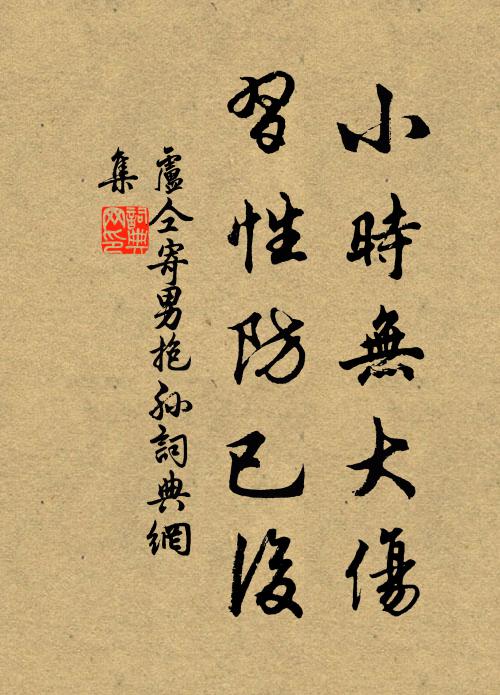 小時無大傷
習性防已後
盧仝寄男抱孫詞典網
集
詞典網印